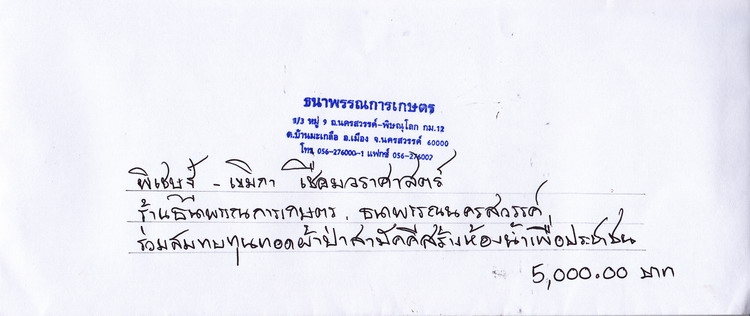 ธนาพรรณการเกษตร
1/3 หมู่ 9 ถ.นครสวรรค์-พิษณุโลก กม.12
ต.บ้านมะเกลือ อ.เมือง จ.นครสวรรค์ 60000
โทร. 056-276000-1 แฟกซ์ 056-276002
พิเชษฐ์ - เขมิกา เชื้อมวราศาสตร์
ร้านธนาพรรณการเกษตร, ธนาพรรณนครสวรรค์
ร่วมสมทบทุนทอดผ้าป่าสามัคคีสร้างห้องน้ำเพื่อประชาชน
5,000.00 บาท